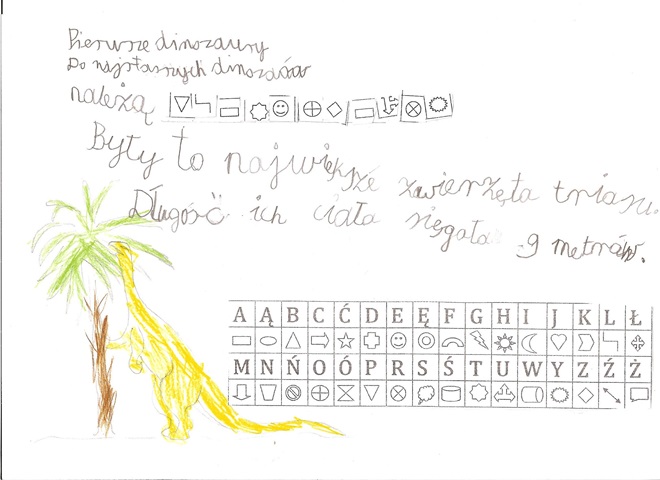 Pierwsze dinozaury
Do najstarszych dinozaurów
należą
Były to największe zwierzęta triasu.
Długość ich ciała sięgała 9 metrów.
A Ą B C Ć D E Ę F G H I J K L Ł
M N Ń O Ó P R S Ś T U W Y Z Ź Ż